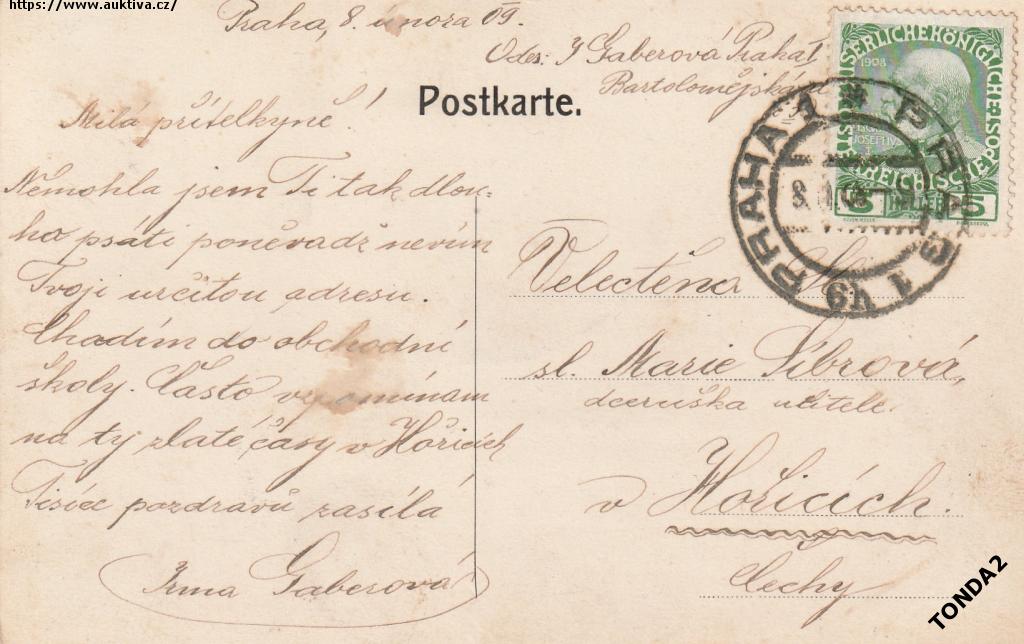 https://www.auktiva.cz/
Praha, 8. února 09.
Odes: I Gaberová Praha I
Bartolomějská
Postkarte.
Milá přítelkyně!
Němohla jsem Ti tak dlou-
ho psáti poněvadž nevím
Tvoji určitou adresu.
Chodím do obchodní
školy. Často vzpomínám
na ty zlaté časy v Hořicích
Tisíce pozdravů zasílá
Irma Gaberová
Velectěná Sl.
sl. Marie Síbrová,
dceruška učitele
v Hořicích.
Čechy
KAISERLICHE KÖNIGLICHE
ÖSTERREICHISCHE POST
1908
HELLER 5
PRAHA 1 * PRAG 1
TONDA2